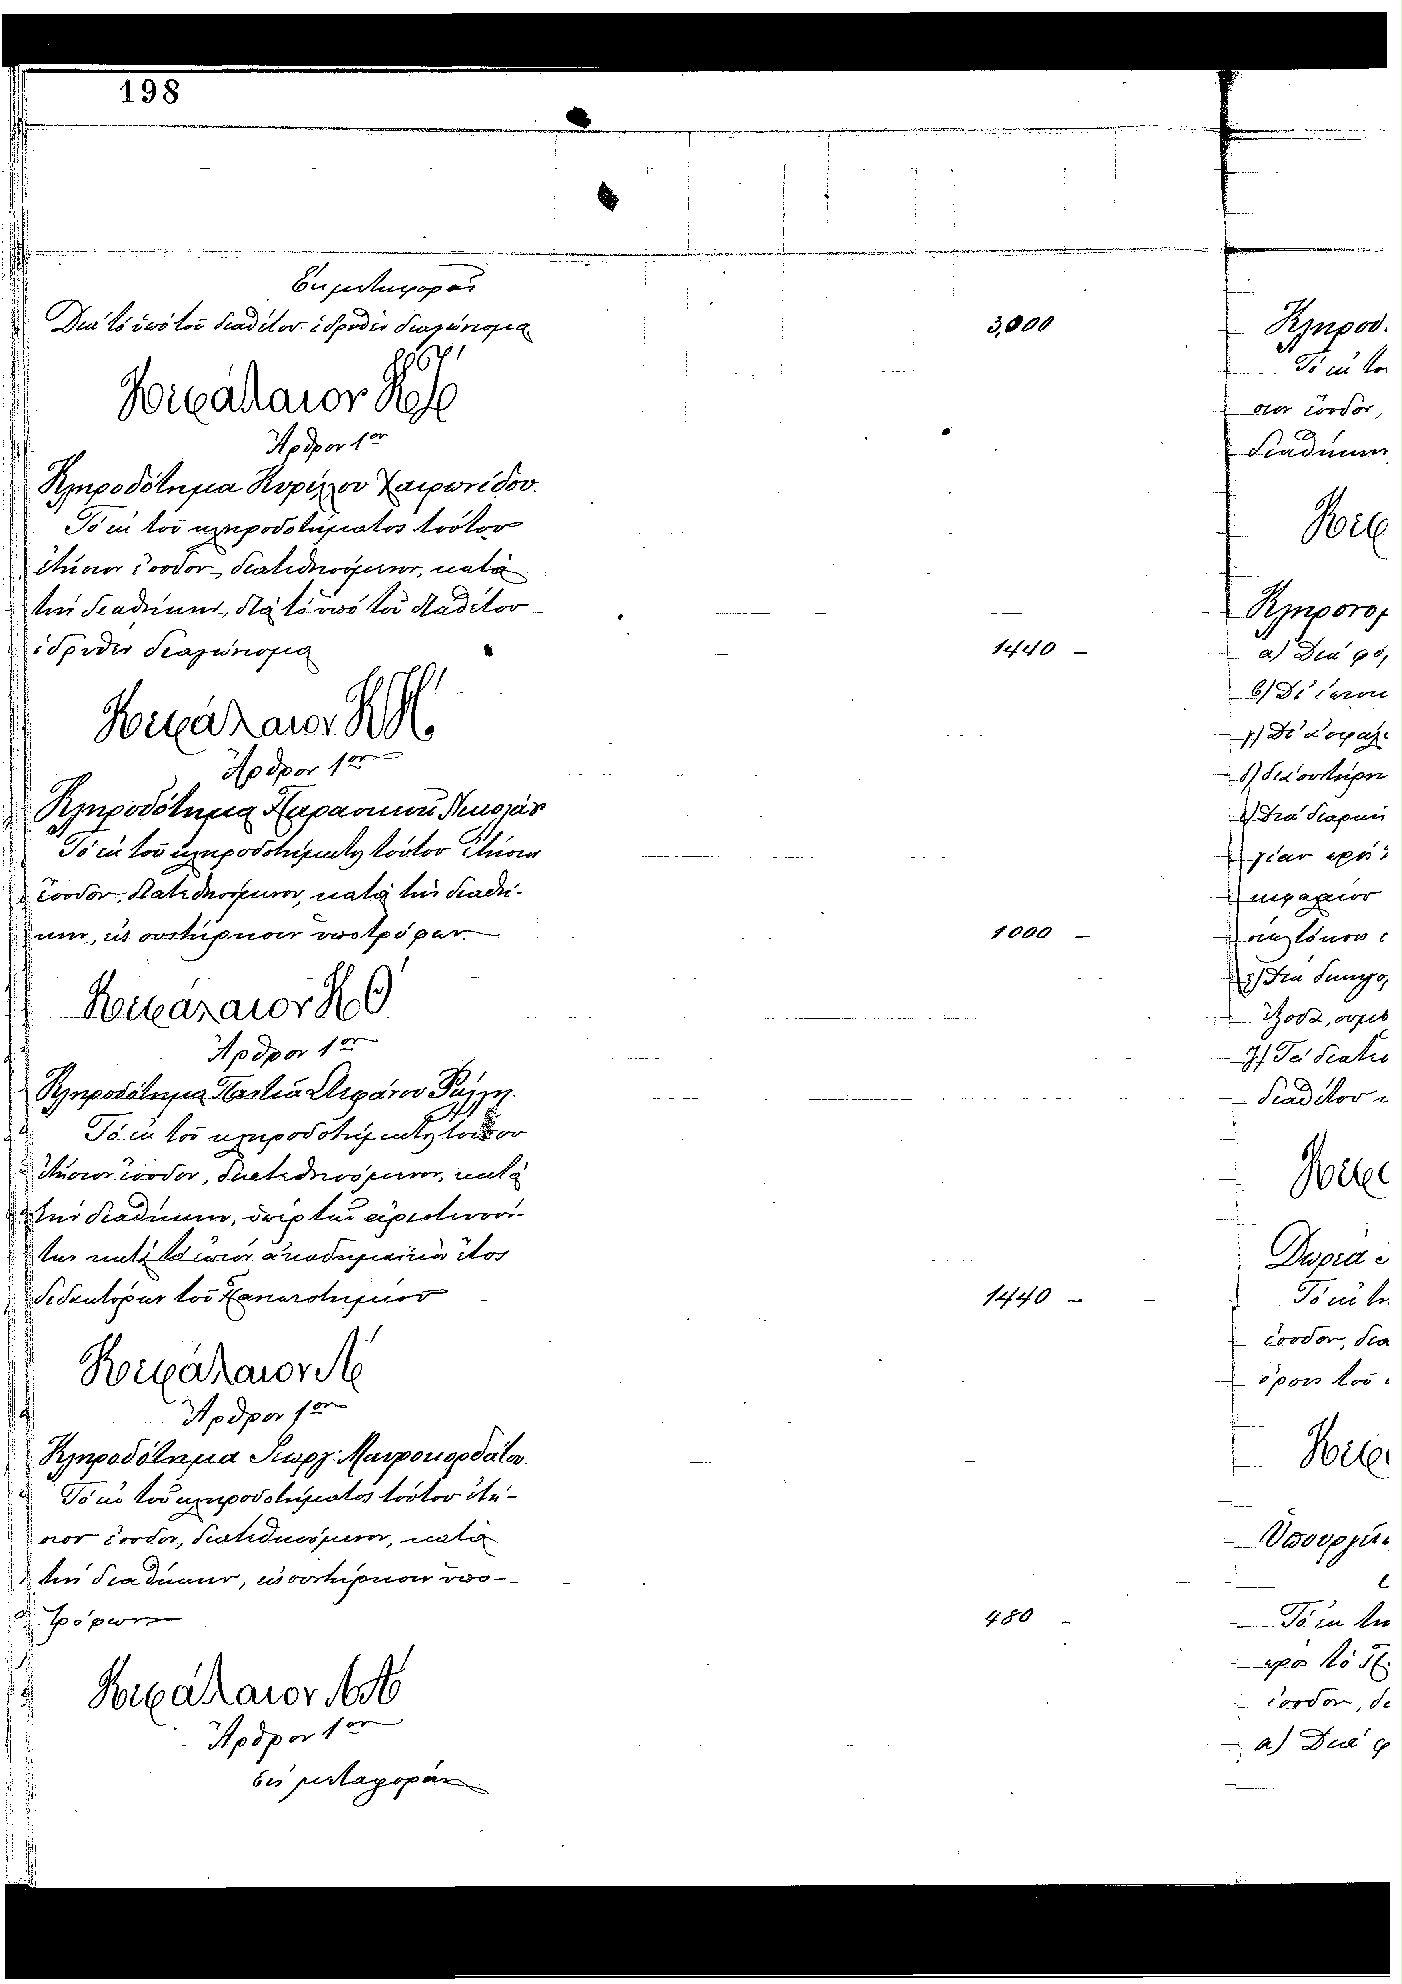 198
Ἐκ μεταφορᾶς
Διὰ τὸ ὑπὸ τοῦ διαθέτου ἱδρυθὲν διαγώνισμα 3,000
Κεφάλαιον ΚΖ'
Ἄρθρον 1ον
Κληροδότημα Κυρίλλου Χαιρωνίδου.
Τὸ ἐκ τοῦ κληροδοτήματος τούτου
ἐτήσιον ἔσοδον, διατεθησόμενον, κατὰ
τὴν διαθήκην, διὰ τὸ ὑπὸ τοῦ διαθέτου
ἱδρυθὲν διαγώνισμα 1440 –
Κεφάλαιον ΚΗ'.
Ἄρθρον 1ον
Κληροδότημα Παρασκευᾶ Νικολάου
Τὸ ἐκ τοῦ κληροδοτήματος τούτου ἐτήσιον
ἔσοδον, διατεθησόμενον, κατὰ τὴν διαθή-
κην, εἰς συντήρησιν ὑποτρόφων. 1000 –
Κεφάλαιον ΚΘ'
Ἄρθρον 1ον
Κληροδότημα Παντιᾶ Στεφάνου Ράλλη.
Τὸ ἐκ τοῦ κληροδοτήματος τούτου
ἐτήσιον ἔσοδον, διατεθησόμενον, κατὰ
τὴν διαθήκην, ὑπὲρ τῶν ἀριστευσόν-
των κατὰ τὸ ἀκαδημαϊκὸν ἔτος
διδακτόρων τοῦ Πανεπιστημίου 1440 –
Κεφάλαιον Λ'
Ἄρθρον 1ον
Κληροδότημα Γεωργ. Μαυροκορδάτου.
Τὸ ἐκ τοῦ κληροδοτήματος τούτου ἐτή-
σιον ἔσοδον, διατεθησόμενον, κατὰ
τὴν διαθήκην, εἰς συντήρησιν ὑπο-
τρόφων 480 –
Κεφάλαιον ΛΑ'
Ἄρθρον 1ον
Εἰς μεταφοράν
Κληροδ
Τὸ ἐκ το
σιον ἔσοδον,
διαθήκην
Κεφ
Κληρονομ
α) Διὰ φό
β) Δι'
γ) Δι' ἀσφαλ
δ) διὰ συντήρη
ε) Διὰ διαρκῆ
κεφαλαίου
ἔξοδα, συμβ
ζ) Τὰ διατε
διαθέτου
Κεφ
Δωρεὰ
Τὸ ἐκ τ
ἔσοδον, δια
ὅρους τοῦ
Κεφ
Ὑπουργ
Τὸ ἐκ το
πρὸς τὸ Π
ἔσοδον, δ
α) Διὰ φ